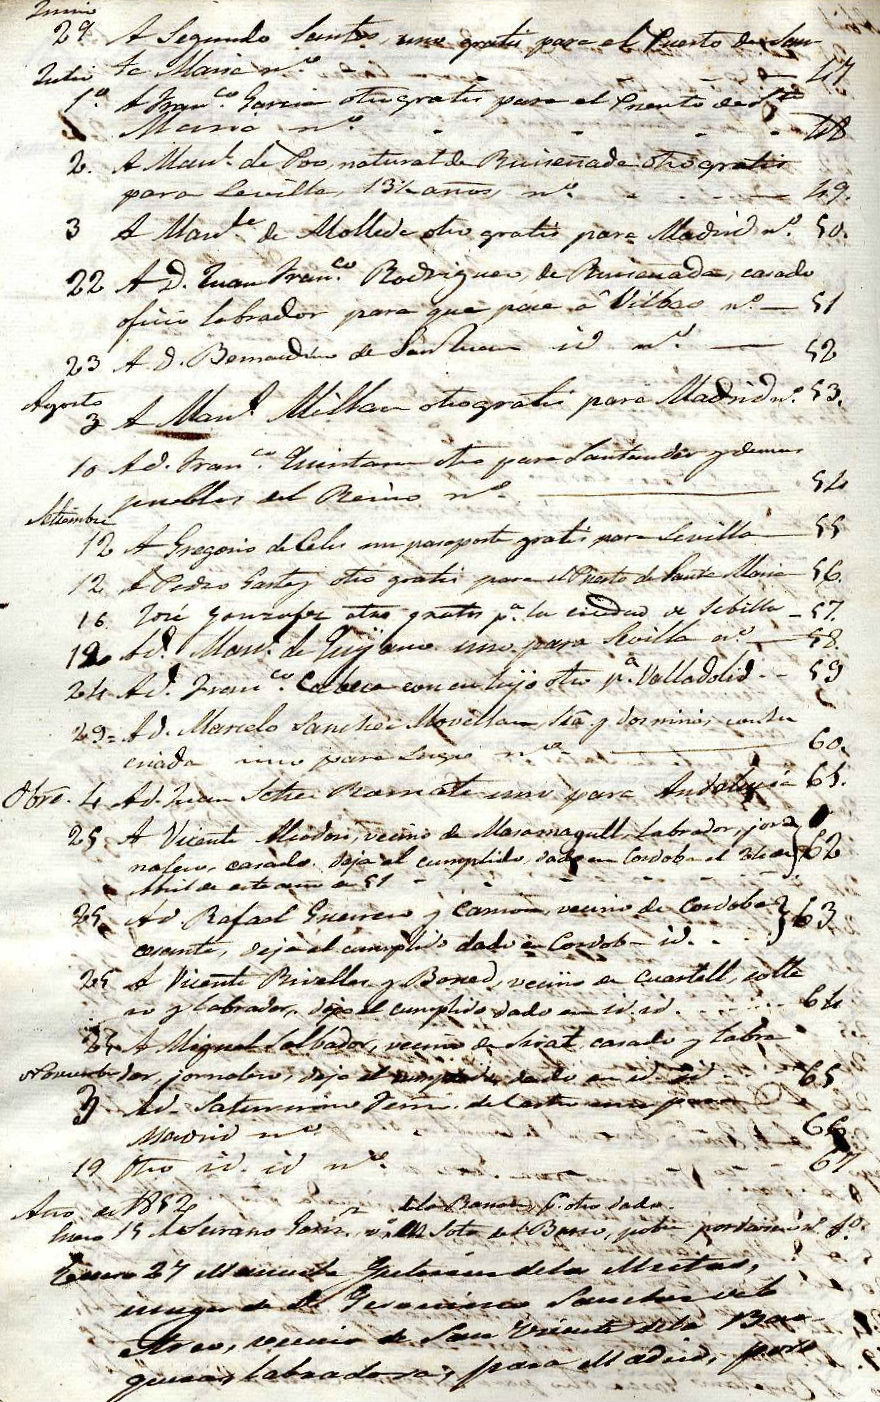 Junio
29 A Segundo Santos, uno gratis para el Puerto de San
Julio ta Maria n.º 47
1.º A Fran.co Garcia otro gratis para el Puerto de Sta
Maria n.º 48
2. A Man.l de Poo, natural de Ruiseñada otro gratis
para Sevilla, 13½ años, n.º 49.
3 A Man.l de Molleda otro gratis para Madrid n.º 50.
22 A D. Juan Fran.co Rodriguez, de Ruiseñada, casado
oficio labrador para que pase a Vilbao n.º 51
23 A D. Bernardino de San Juan id n.º 52
Agosto
3 A Man.l Millan otro gratis para Madrid n.º 53.
10 A d. Fran.co Quintana otro para Santander y demas
pueblos del Reino n.º 54
Setiembre
12 A Gregorio de Celis un pasaporte gratis para Sevilla 55
12 A Pedro otro gratis para el Puerto de Santa Maria 56.
16 José Gonzalez otro gratis p.a la ciudad de Sebilla 57.
19 A d. Man.l de Quijano uno para Sevilla n.º 58.
24 A d. Fran.co con su hijo otro p.a Valladolid 59
29 A d. Marcelo Sanchez Movellan, y dos niños, con su
criada uno para n.º 60.
Obre. 4 A d. Juan uno para Andalucia 61.
25 A Vicente vecino de Masamagull, labrador, jor
nalero, casado. deja el cumplido, dado en Cordoba el 24 de
Abril de este año de 51 62
25 A d. Rafael Guerrero y vecino de Cordoba
cesante, deja el cumplido dado en Cordoba id. 63
25 A Vicente Rivelles y Boned, vecino de Cuartell, solte
ro y labrador, dejo el cumplido dado en id. id. 64
25 A Miguel Salbador, vecino de casado y labra
Noviembre dor, jornalero, deja el cumplido, dado en id. id 65
3 A d. Saturnino de Castro uno para
Madrid n.º 66
19 Otro id. id n.º 67
Año de 1852
Enero 15 n.º 1.º
Enero 27 Manuela Gutierrez de las
muger de D. Francisco Sanchez del
vecino de San Vicente de la Bar
labradora, para Madrid,